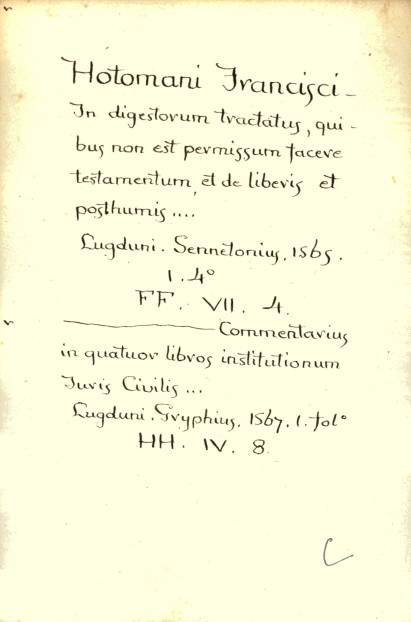 Hotomani Francisci -
In digestorum tractatus, qui -
bus non est permissum facere
testamentum, et de liberis et
posthumis ....
Lugduni. Sennetonius, 1565.
1. 4º
FF. VII. 4.
Commentarius
in quatuor libros institutionum
Juris Civilis ...
Lugduni. Gryphius, 1567. 1. folº
HH. IV. 8
C